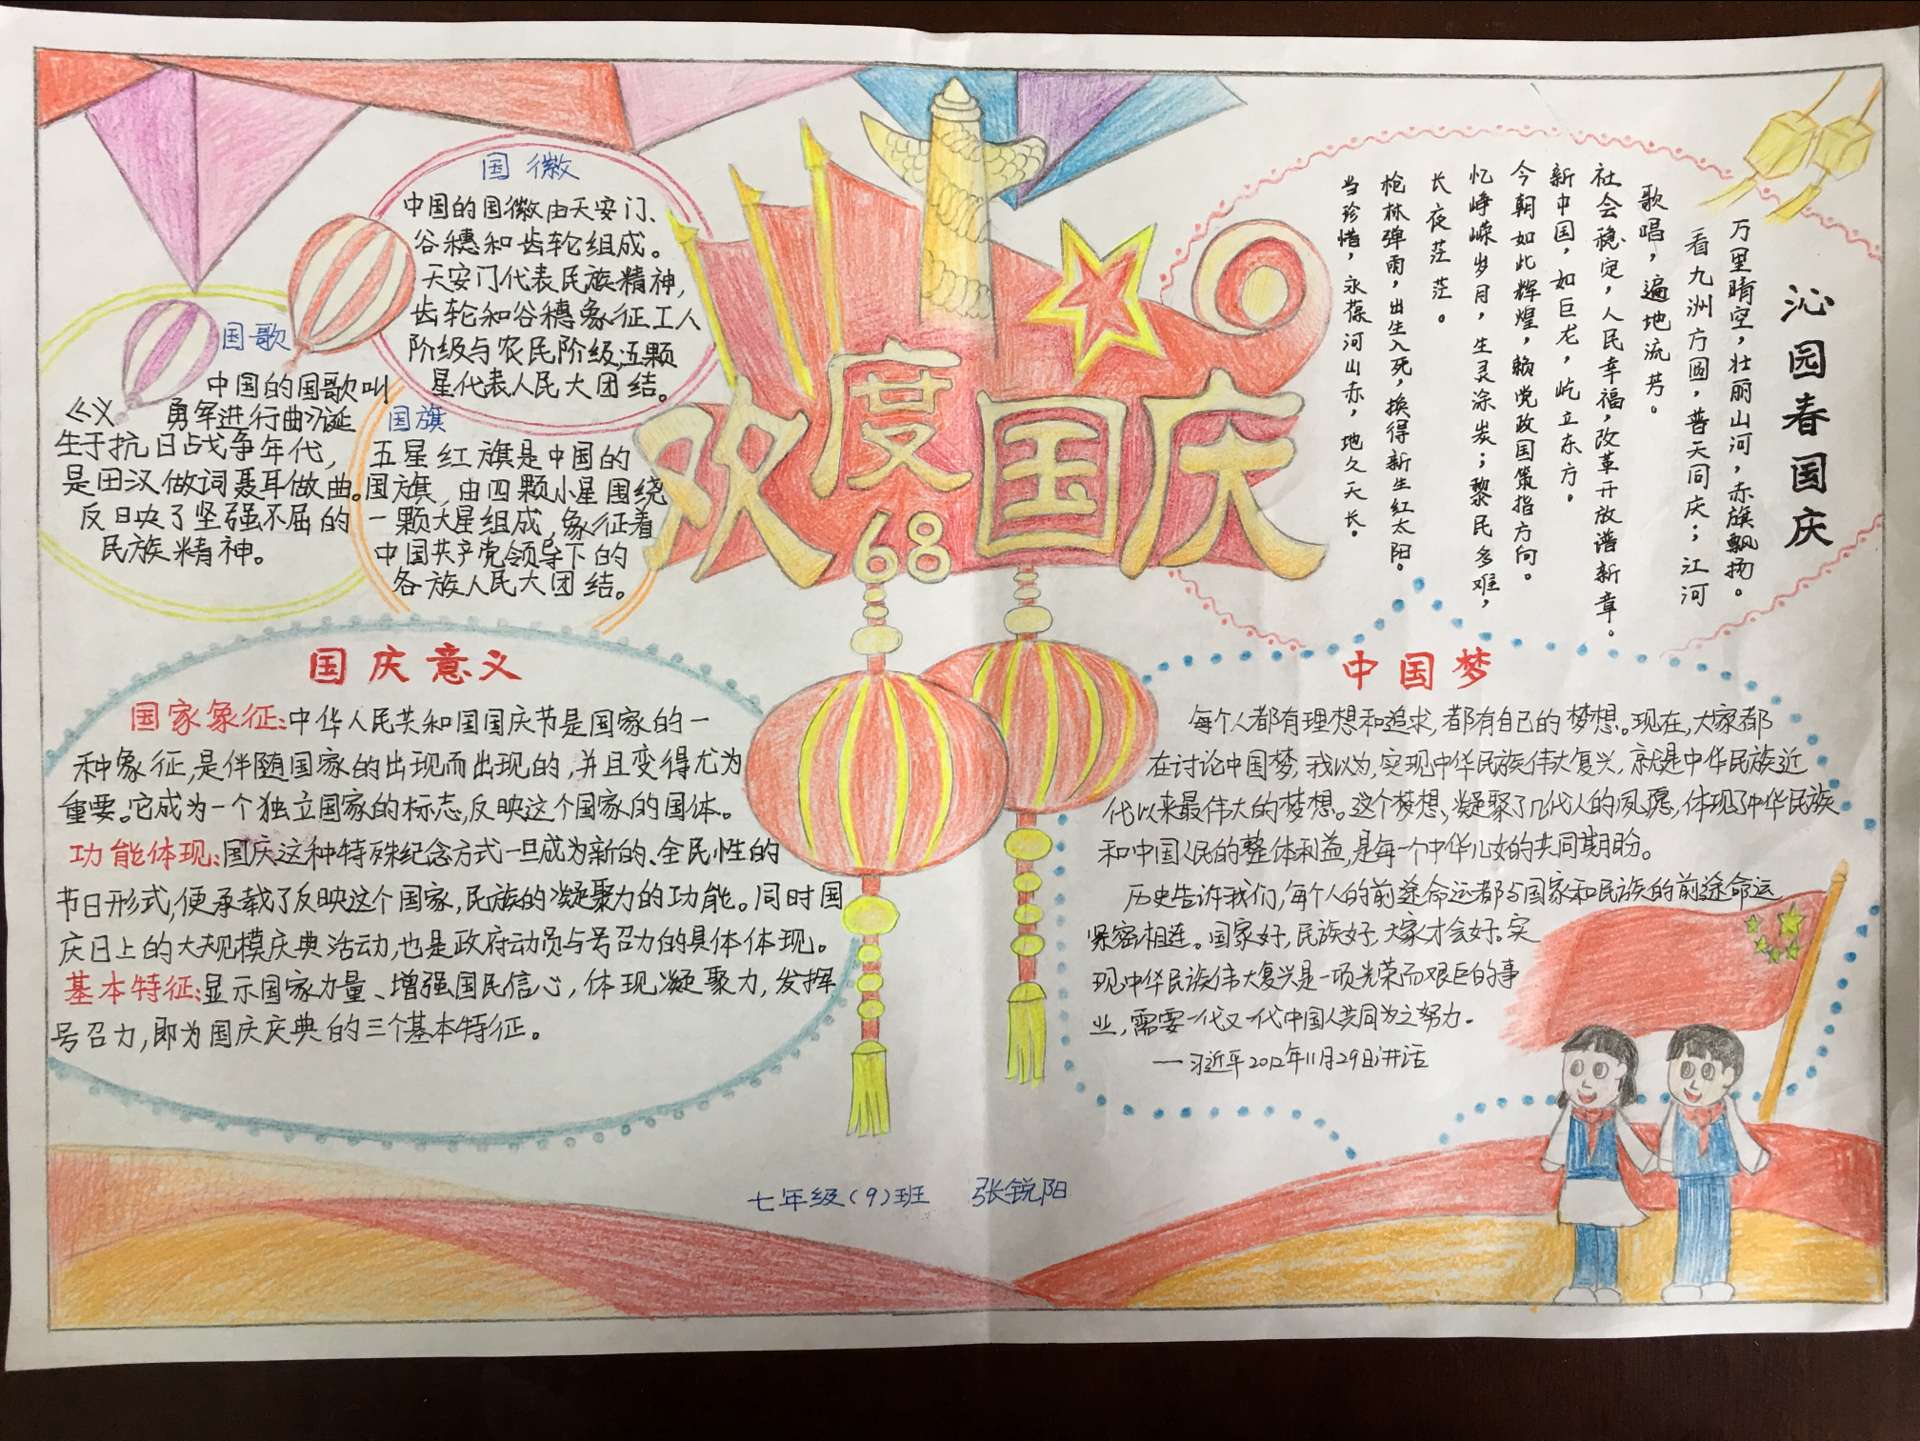 国徽
中国的国徽由天安门、
谷穗和齿轮组成。
天安门代表民族精神,
齿轮和谷穗象征工人
阶级与农民阶级;五颗
星代表人民大团结。
国歌
中国的国歌叫
《义勇军进行曲》诞
生于抗日战争年代,
是田汉做词聂耳做曲。
反映了坚强不屈的
民族精神。
国旗
五星红旗是中国的
国旗,由四颗小星围绕
一颗大星组成,象征着
中国共产党领导下的
各族人民大团结。
欢度国庆
68
沁园春国庆
万里晴空,壮丽山河,赤旗飘扬。
看九洲方圆,普天同庆;江河
歌唱,遍地流芳。
社会稳定,人民幸福,改革开放谱新章。
新中国,如巨龙,屹立东方。
今朝如此辉煌,赖党政国策指方向。
忆峥嵘岁月,生灵涂炭;黎民多难,
长夜茫茫。
枪林弹雨,出生入死,换得新生红太阳。
当珍惜,永葆河山赤,地久天长。
国庆意义
国家象征:中华人民共和国国庆节是国家的一
种象征,是伴随国家的出现而出现的,并且变得尤为
重要。它成为一个独立国家的标志,反映这个国家的国体。
功能体现:国庆这种特殊纪念方式一旦成为新的、全民性的
节日形式,便承载了反映这个国家,民族的凝聚力的功能。同时国
庆日上的大规模庆典活动,也是政府动员与号召力的具体体现。
基本特征:显示国家力量、增强国民信心,体现凝聚力,发挥
号召力,即为国庆庆典的三个基本特征。
中国梦
每个人都有理想和追求,都有自己的梦想。现在,大家都
在讨论中国梦,我以为,实现中华民族伟大复兴,就是中华民族近
代以来最伟大的梦想。这个梦想,凝聚了几代人的夙愿,体现了中华民族
和中国人民的整体利益,是每一个中华儿女的共同期盼。
历史告诉我们,每个人的前途命运都与国家和民族的前途命运
紧密相连。国家好,民族好,大家才会好。实
现中华民族伟大复兴是一项光荣而艰巨的事
业,需要一代又一代中国人共同为之努力。
——习近平2012年11月29日讲话
七年级(9)班 张锐阳